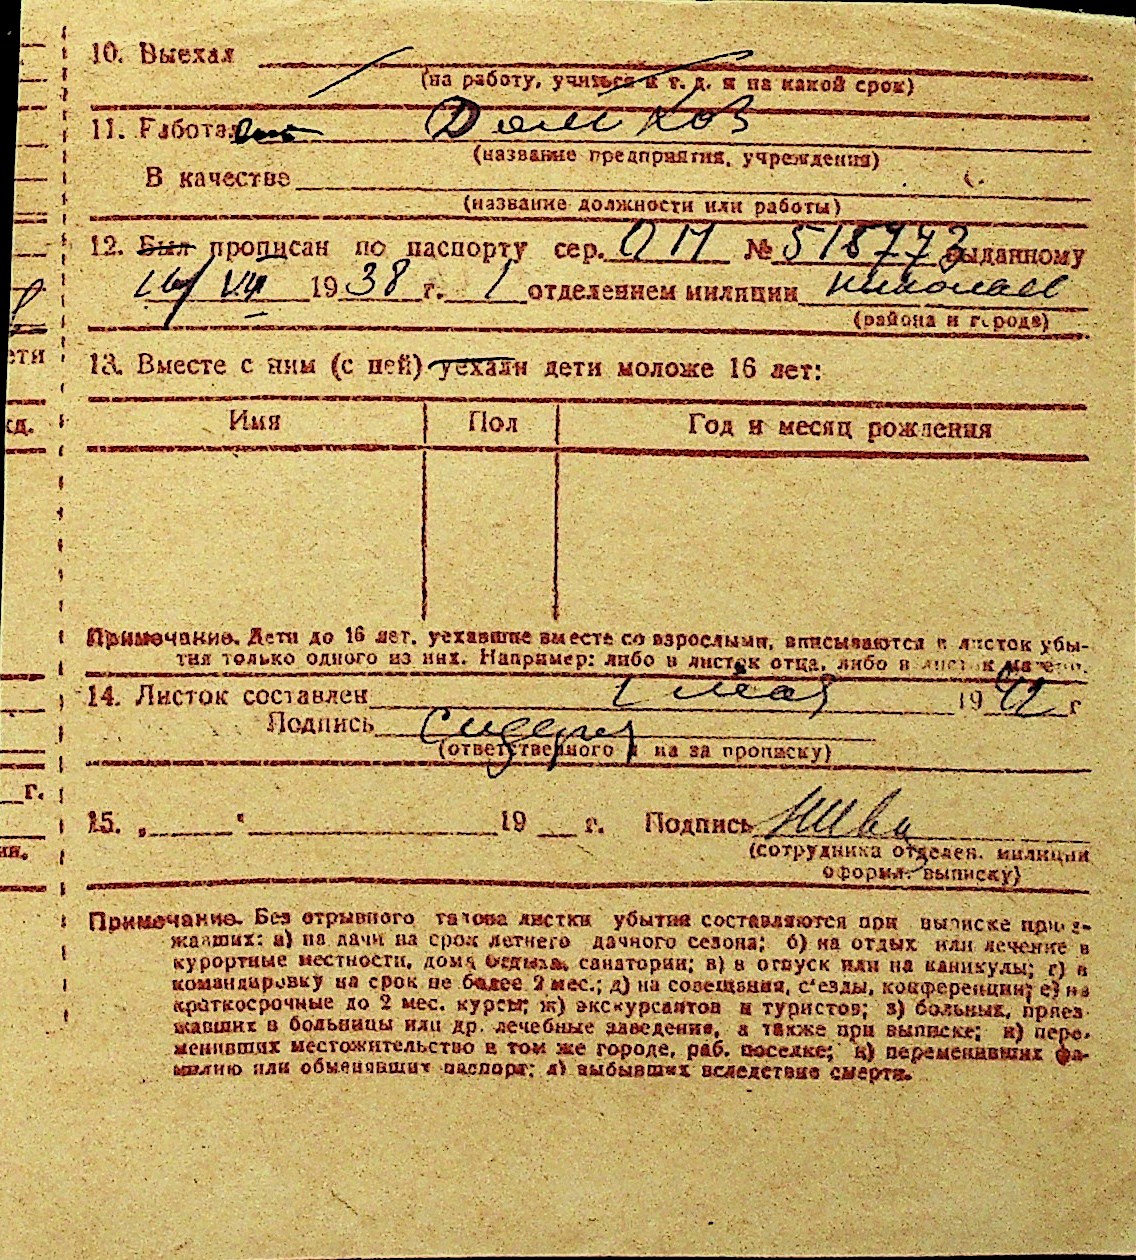 10. Выехал
(на работу, учиться и т. д. и на какой срок)
11. Работал Домохоз
(название предприятия, учреждения)
В качестве
(название должности или работы)
12. Был прописан по паспорту сер. ОМ № 518773 выданному
VII 1938 г. 1 отделением милиции Николаев
(района и города)
ети
13. Вместе с ним (с ней) уехали дети моложе 16 лет:
жд.
Имя Пол Год и месяц рождения
Примечание. Дети до 16 лет, уехавшие вместе со взрослыми, вписываются в листок убы-
тия только одного из них. Например: либо в листок отца, либо в листок матери.
14. Листок составлен 1 мая 1942 г
Подпись
(ответственного на за прописку)
г.
15. „ “ 19 г. Подпись
(сотрудника отделен. милиции
оформл. выписку)
Примечание. Без отрывного талона листки убытия составляются при выписке приез-
жавших: а) на дачи на срок летнего дачного сезона; б) на отдых или лечение в
курортные местности, дома отдыха, санатории; в) в отпуск или на каникулы; г) в
командировку на срок не более 2 мес.; д) на совещания, съезды, конференции; е) на
краткосрочные до 2 мес. курсы; ж) экскурсантов и туристов; з) больных, приез-
жавших в больницы или др. лечебные заведения, а также при выписке; и) пере-
менивших местожительство в том же городе, раб. поселке; к) переменивших фа-
милию или обменявших паспорт; л) выбывших вследствие смерти.